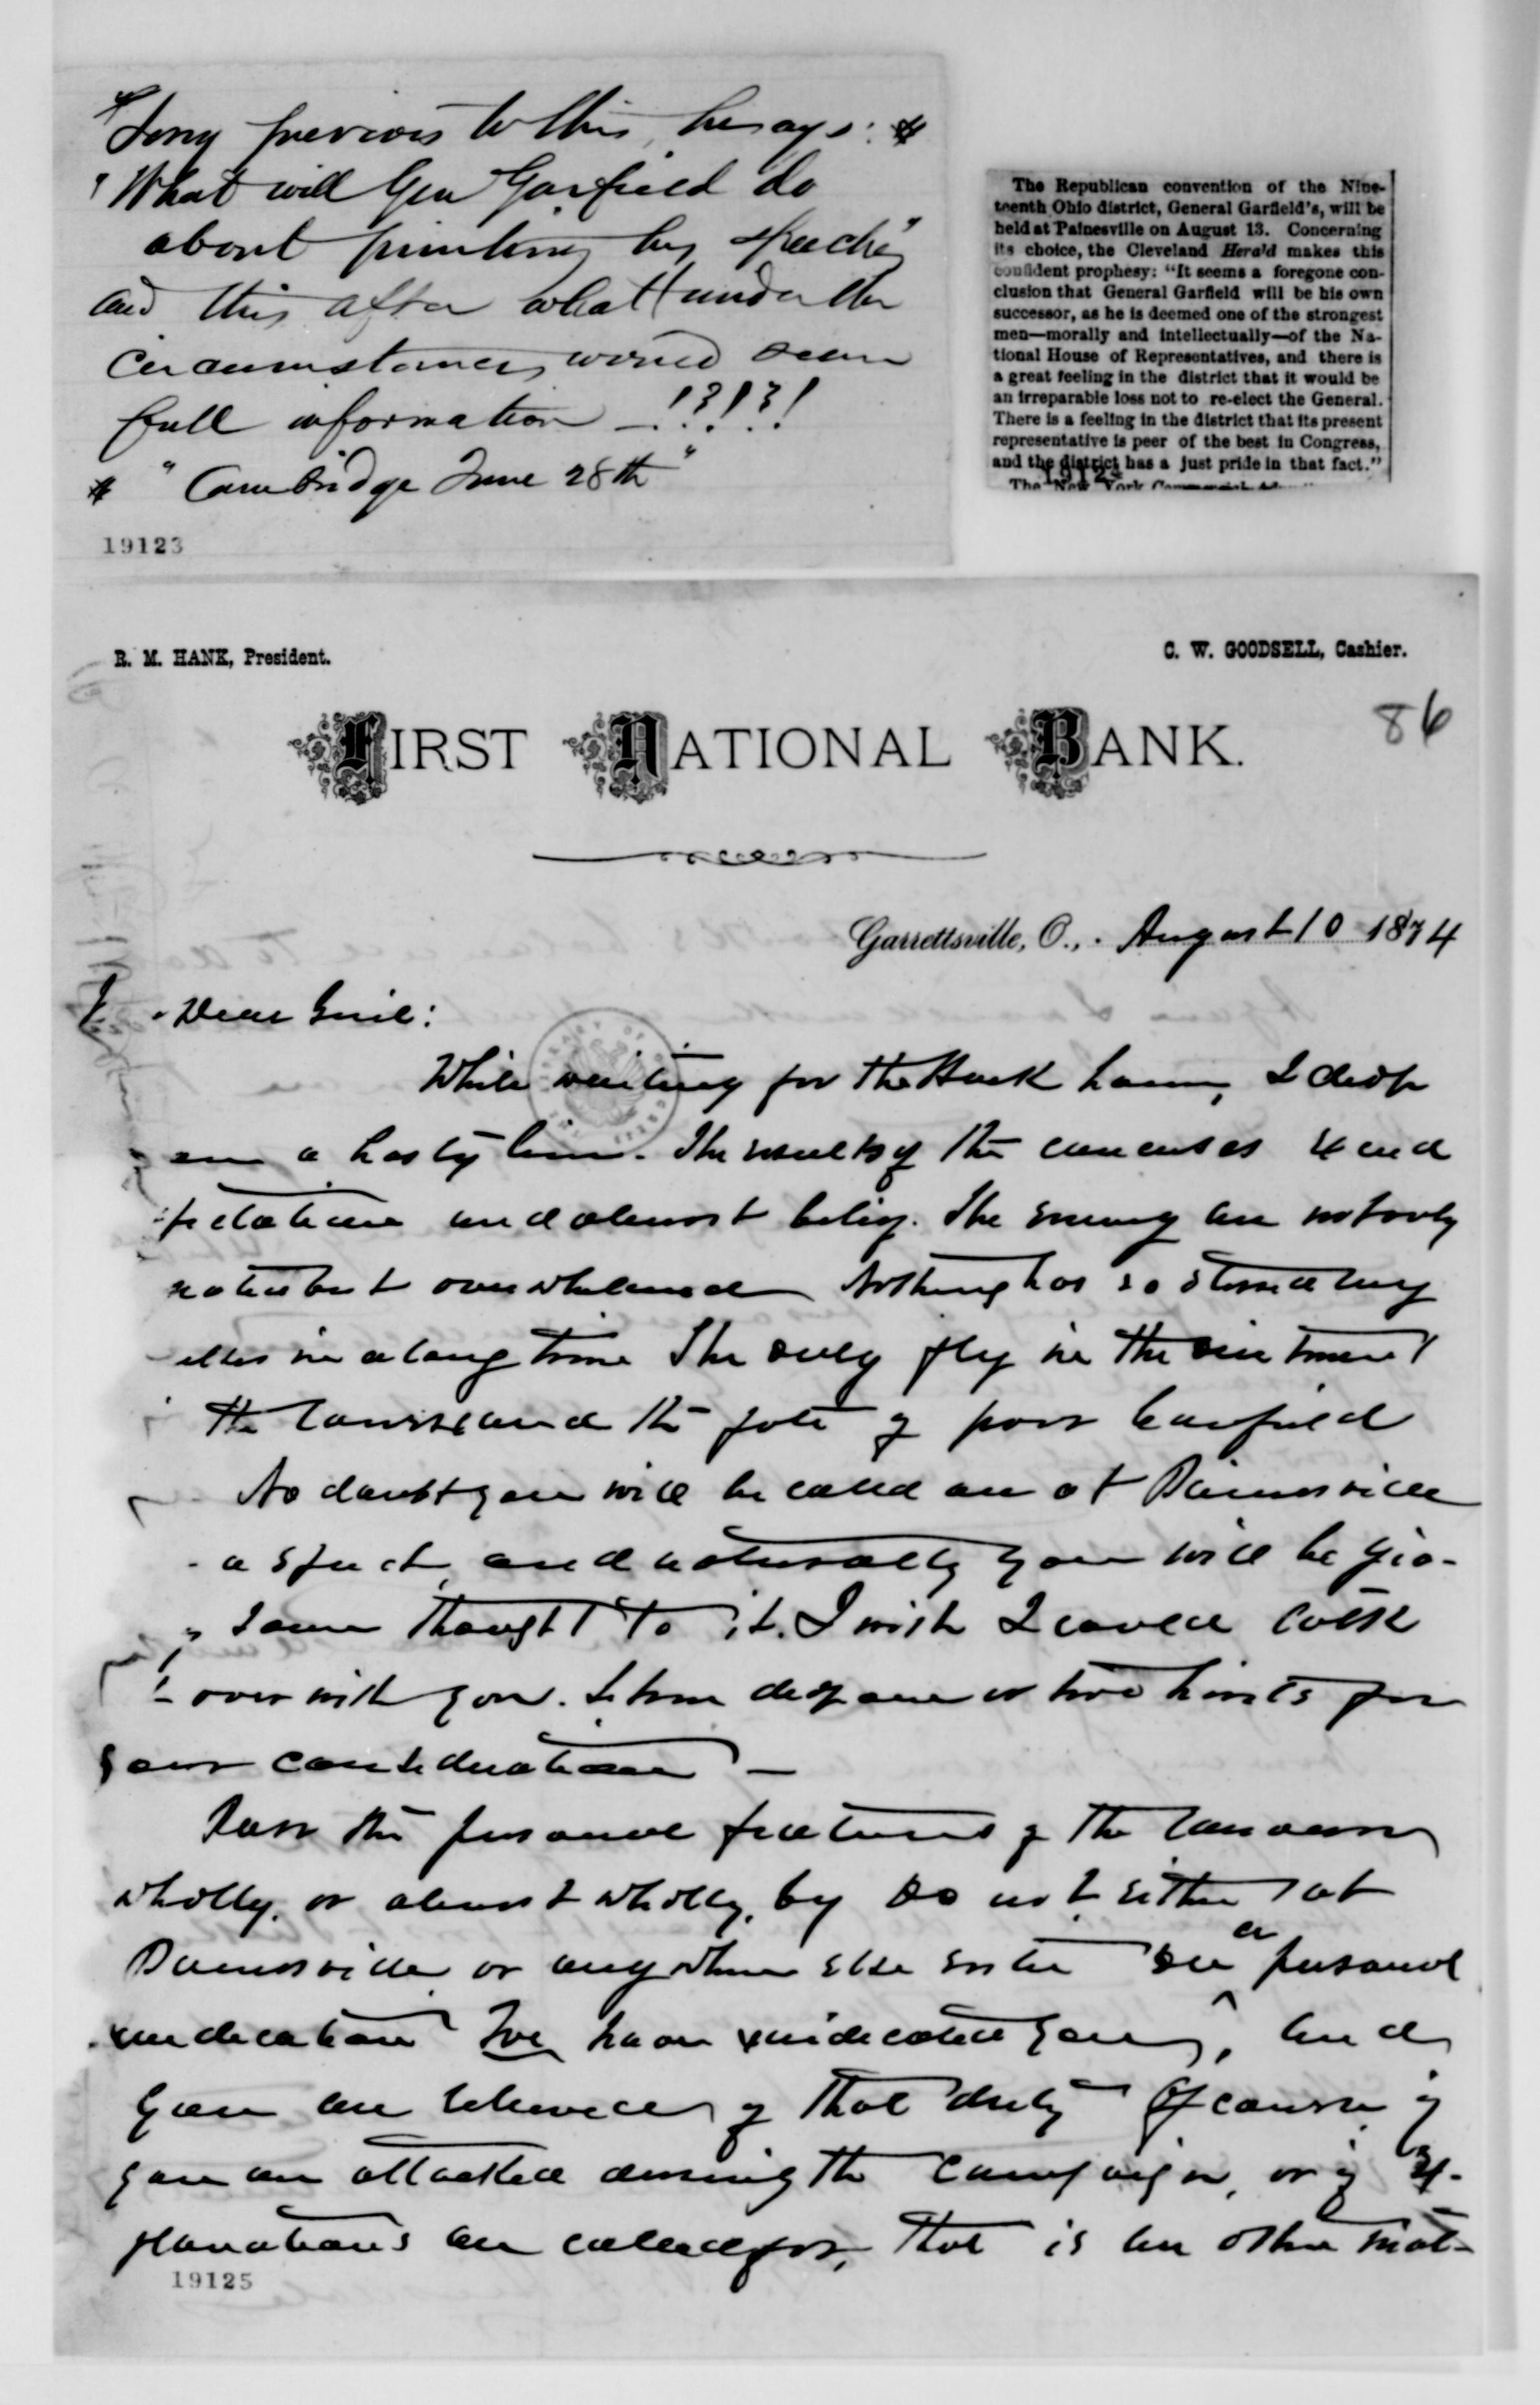 Long previous to this, he says: *
"What will Gen Garfield do
about printing his speech"
and this after what under the
circumstances would seem
full information —!?!?!
* "Cambridge June 28th"
19123
The Republican convention of the Nine-
teenth Ohio district, General Garfield's, will be
held at Painesville on August 13. Concerning
its choice, the Cleveland Herald makes this
confident prophesy: "It seems a foregone con-
clusion that General Garfield will be his own
successor, as he is deemed one of the strongest
men—morally and intellectually—of the Na-
tional House of Representatives, and there is
a great feeling in the district that it would be
an irreparable loss not to re-elect the General.
There is a feeling in the district that its present
representative is peer of the best in Congress,
and the district has a just pride in that fact."
The New York
R. M. HANK, President.
C. W. GOODSELL, Cashier.
86
FIRST NATIONAL BANK.
Garrettsville, O., August 10 1874
Dear
While waiting for the Hack home, I drop
a hasty line. The results of the caucuses
and almost belief. The enemy are not only
but overwhelmed. Nothing has so
in a long time. The only fly in the ointment
the and the fate of poor Canfield
No doubt you will be called on at Painesville
a speech, and naturally you will be giv-
some thought to it. I wish I could talk
over with you. Let me drop one or two hints for
your consideration —
Pass the personal features of the canvass
wholly, or almost wholly, by. Do not either at
Painesville or anywhere else enter on a personal
vindication. We have vindicated you, and
you are relieved of that duty. Of course if
you are attacked during the campaign, or if ex-
planations are called for, that is another mat-
19125